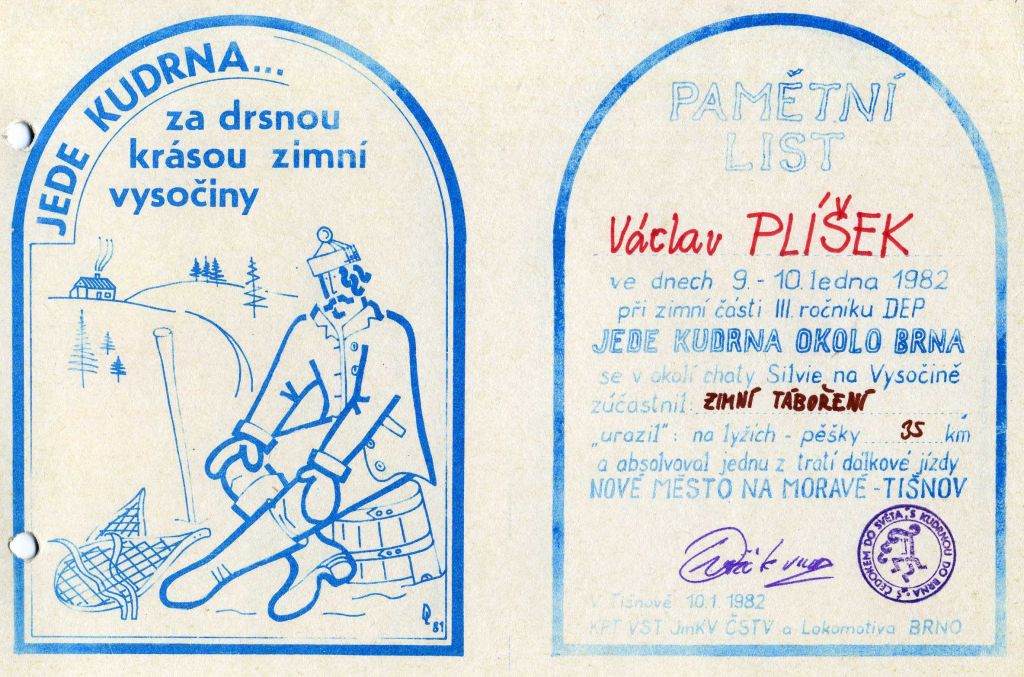 JEDE KUDRNA...
za drsnou
krásou zimní
vysočiny
81
PAMĚTNÍ
LIST
Václav PLÍŠEK
ve dnech 9. - 10. ledna 1982
při zimní části III. ročníku DEP
JEDE KUDRNA OKOLO BRNA
se v okolí chaty Silvie na Vysočině
zúčastnil: ZIMNÍ TÁBOŘENÍ
„urazil": na lyžích - pěšky 35 km
a absolvoval jednu z tratí dálkové jízdy
NOVÉ MĚSTO NA MORAVĚ - TIŠNOV
S ČEDOKEM DO SVĚTA, S KUDRNOU DO BRNA
V Tišnově 10.1. 1982
KPT VST JmKV ČSTV a Lokomotiva BRNO